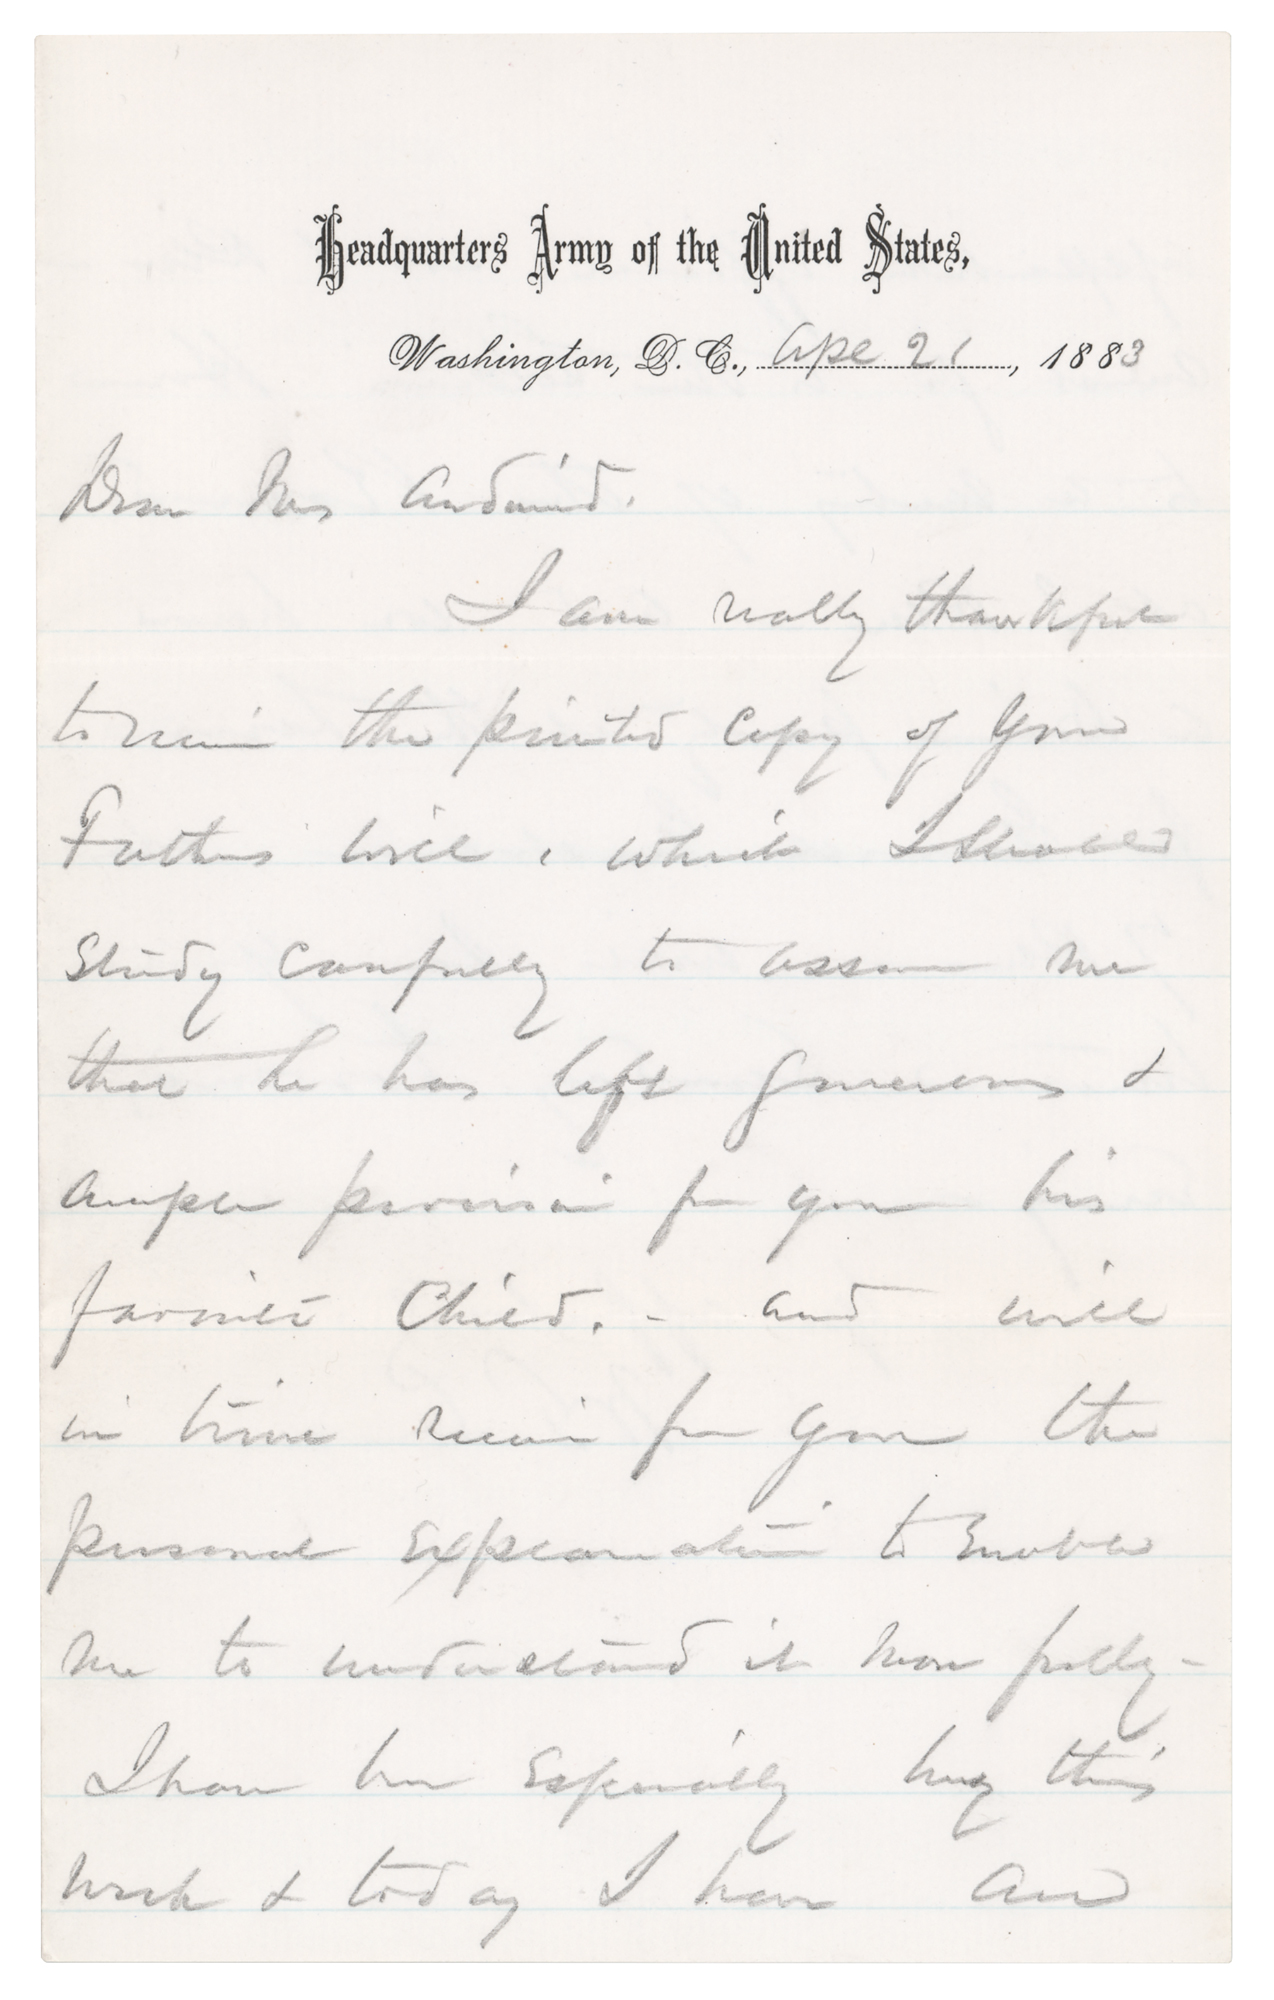 Headquarters Army of the United States,
Washington, D. C., Apl 21, 1883
Dear Mrs Audenried.
I am really thankful
to receive the printed copy of your
Fathers will, which I shall
study carefully to assure me
that he has left generous &
ample provision for you his
favorite Child. - and will
in time receive from you the
personal Explanation to Enable
me to understand it more fully -
I have been Especially busy this
week & today I have